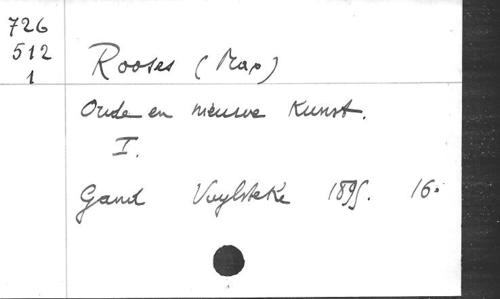 726
512
1
Rooses (Max)
Oude en nieuwe Kunst.
I.
Gand Vuylsteke 1895. 16°